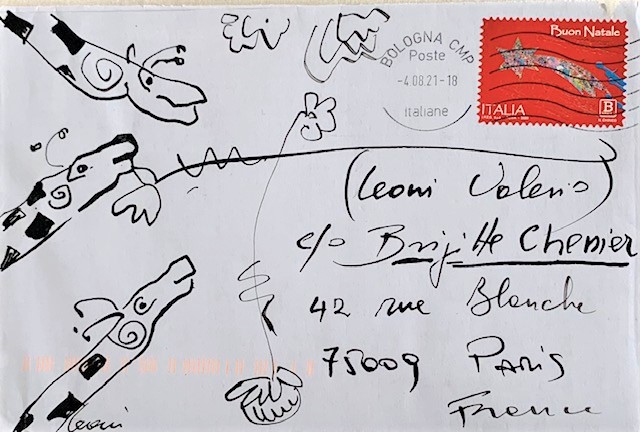 Buon Natale
BOLOGNA CMP
Poste
-4.08.21-18
italiane
ITALIA
B
(Leoni Valerio)
c/o Brigitte Chenier
42 rue Blanche
75009 Paris
France
Leoni